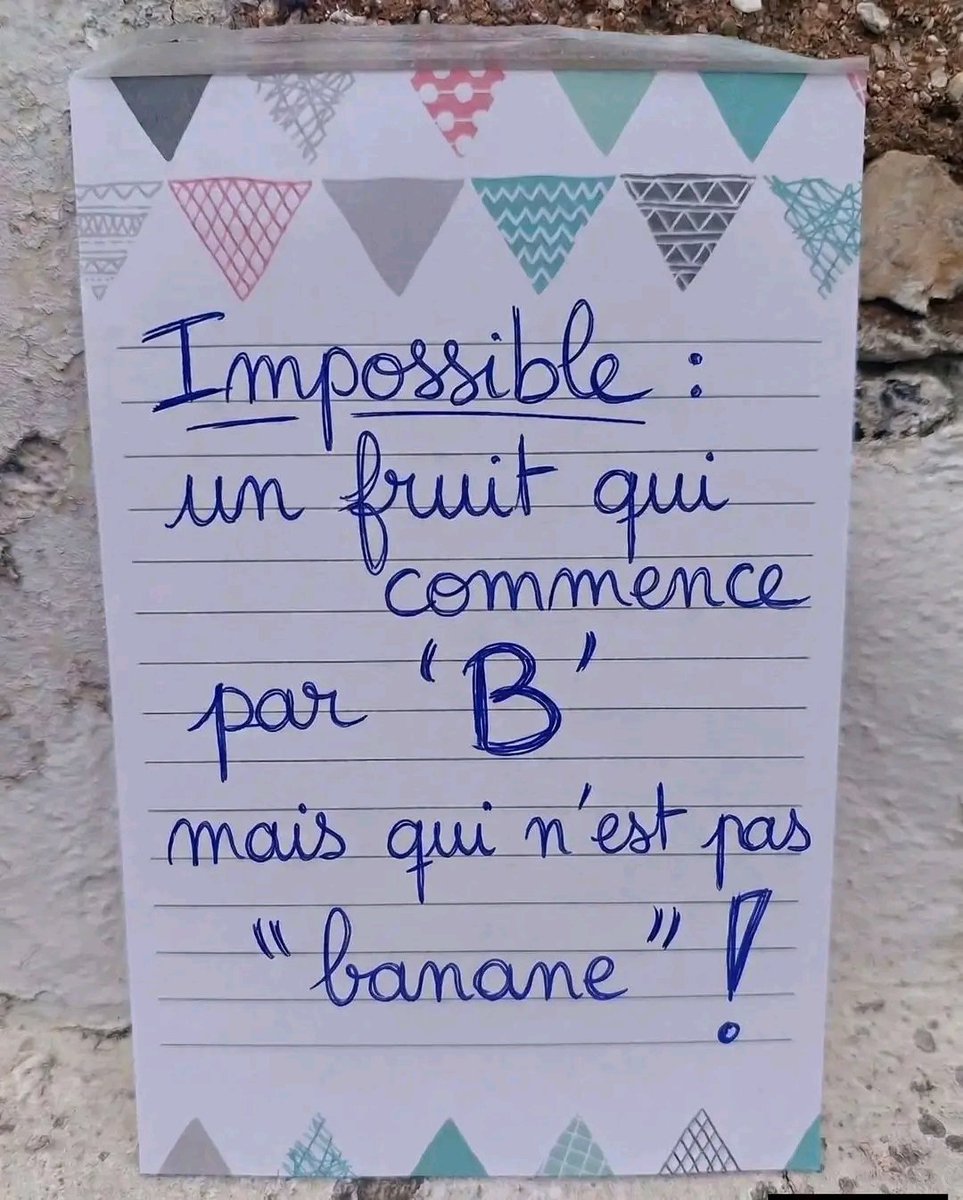 Impossible :
un fruit qui
commence
par "B"
mais qui n'est pas
"banane" !